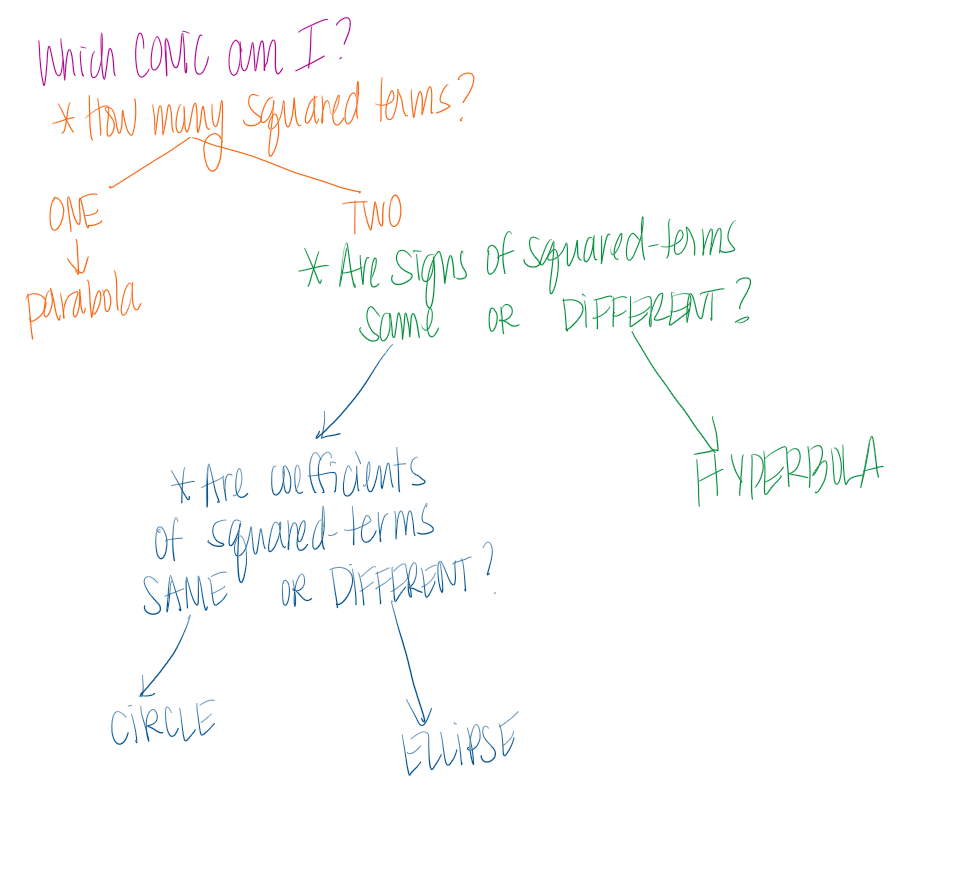 Which CONIC am I?
* How many squared terms?
ONE
TWO
parabola
* Are signs of squared-terms
same OR DIFFERENT?
HYPERBOLA
* Are coefficients
of squared-terms
SAME OR DIFFERENT?
CIRCLE
ELLIPSE